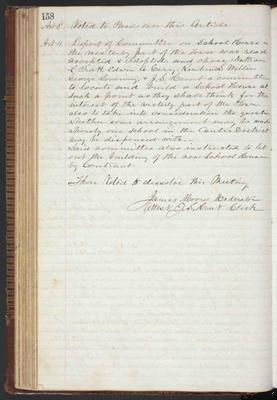 158
Art 8. Voted to Pass over this Article
Art 11. Report of Committee on School House in
the westerly part of the Town was read
accepted & adopted and chose Nathan
L. Pratt Edwin
George & J. S. Kent a committee
to locate and build a School House at
such a point as they shall think for the
interest of the westerly part of the Town
also to take into consideration the question
whether some arrangement may be made
whereby one School in the Center District
may be dispensed with.
Said committee also instructed to let
out the building of the new School House
by Contract
Then Voted to dissolve this Meeting
James Moderator
Attest J. S. Kent Clerk